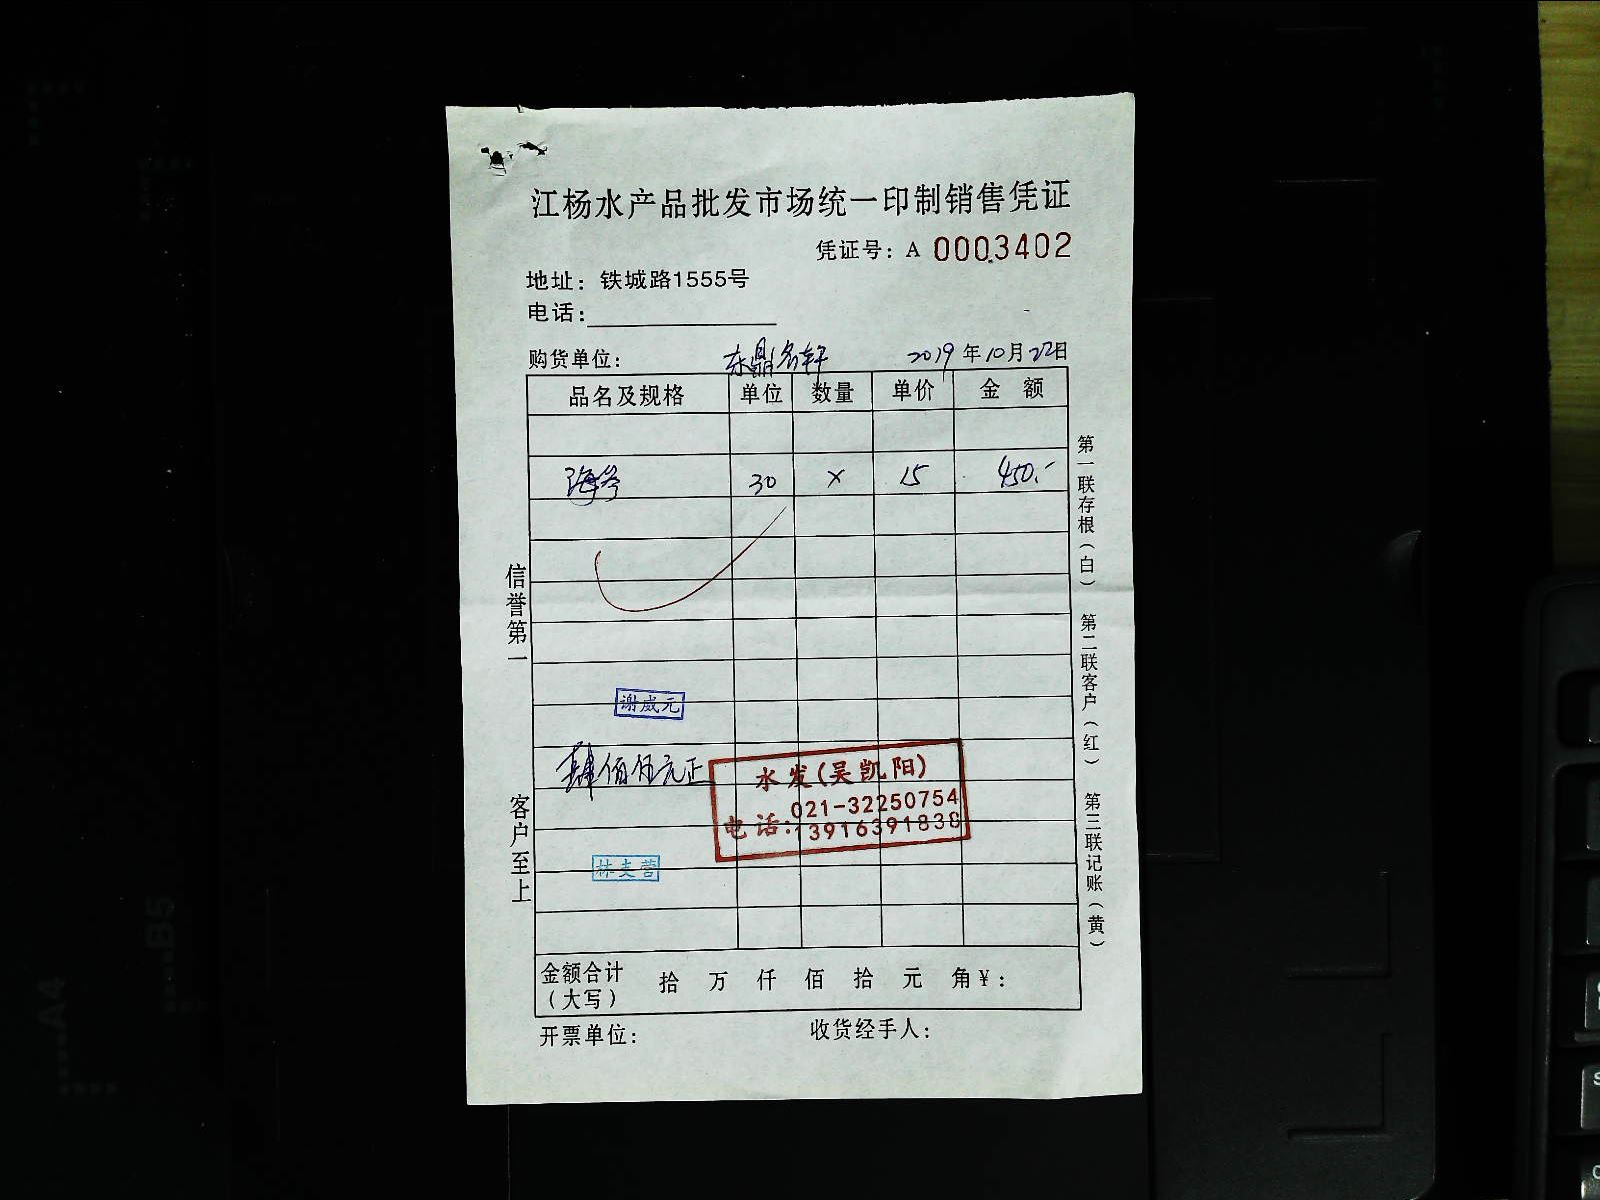 江杨水产品批发市场统一印制销售凭证
凭证号：A 0003402
地址：铁城路1555号
电话：
购货单位： 东鼎名轩 2019年10月22日
品名及规格 单位 数量 单价 金额
海参 30 × 15 450.-
信誉第一
客户至上
谢威元
肆佰伍元正
水发(吴凯阳)
021-32250754
电话：13916391838
林支营
金额合计 拾 万 仟 佰 拾 元 角￥：
（大写）
开票单位： 收货经手人：
第一联存根（白） 第二联客户（红） 第三联记账（黄）